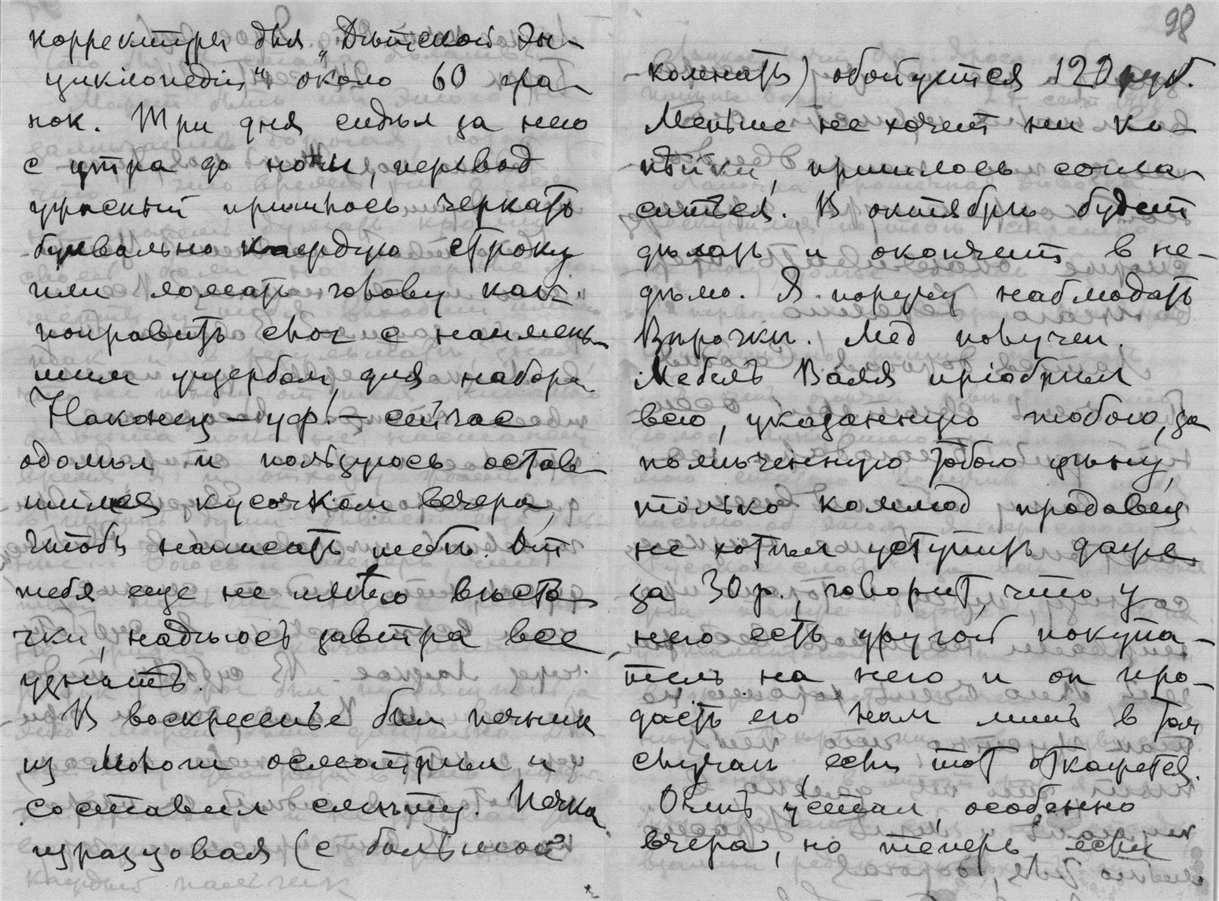 корректуры для „Дѣтской Эн-
циклопедіи“ около 60 гра-
нок. Три дня сидѣл за нею
с утра до ночи, перевод
ужасный пришлось черкать
буквально каждую строку
или ломать голову как
поправить слог с наимень-
шим ущербом для набора.
Наконец — уф! — сейчас
одолѣл и пользуюсь остав-
шимся кусочком вечера,
чтобы написать тебѣ. От
тебя еще не имѣю вѣсто-
чки, надѣюсь завтра все
узнать.
В воскресенье был печник
из Мологи осмотрѣл и
составил смѣту. Печка
изразцовая (с большой
98
комнаты) обойдется 120 руб.
Меньше не хочет ни ко-
пѣйки, пришлось согла-
ситься. В октябрѣ будет
дѣлать и окончит в не-
дѣлю. Я поручу наблюдать
Мед получен.
Мебель Валя пріобрѣл
всю, указанную тобою, за
помѣченную тобою цѣну,
только комод продавец
не хотѣл уступить даже
за 30 р., говорит, что у
него есть другой покупа-
тель на него и он про-
даст его нам лишь в том
случаѣ, если тот откажется.
Очень устал, особенно
вечера, но теперь если